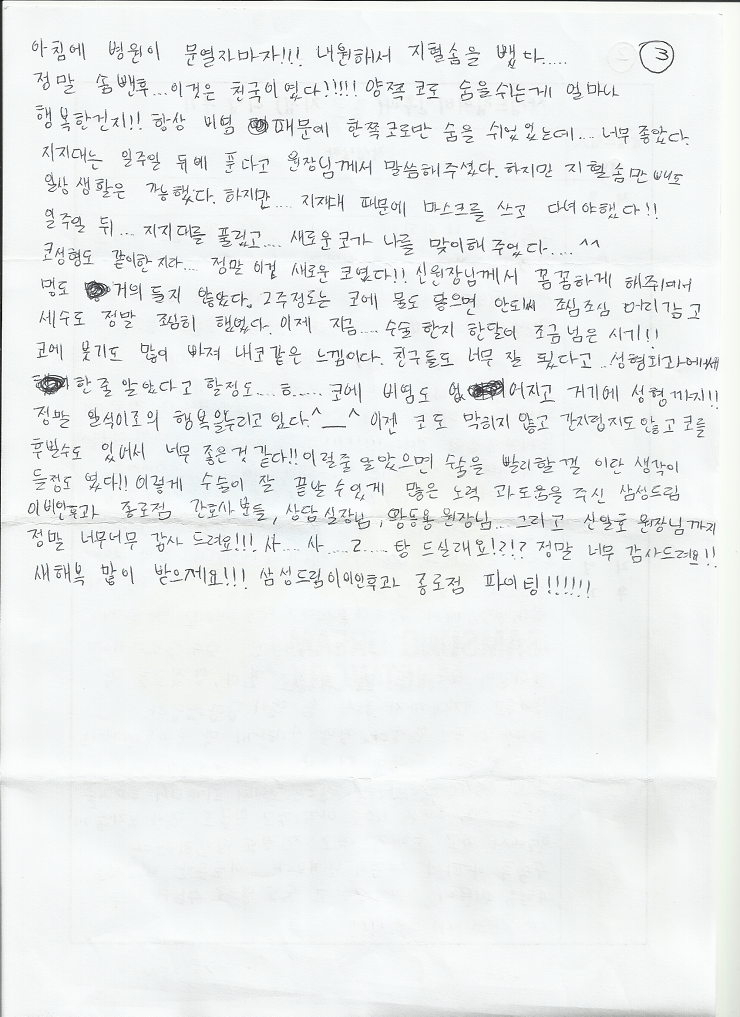 ③
아침에 병원이 문열자마자!!! 내원해서 지혈솜을 뺐다.....
정말 솜뺀후...이것은 천국이였다!!!!! 양쪽코로 숨을쉬는게 얼마나
행복한건지!! 항상 비염 때문에 한쪽코로만 숨을 쉬었었는데... 너무좋았다.
지지대는 일주일 뒤에 푼다고 원장님께서 말씀해주셨다. 하지만 지혈솜만 빼도
일상생활은 가능했다. 하지만.... 지지대 때문에 마스크를 쓰고 다녀야했다!!
일주일 뒤... 지지대를 풀렀고.... 새로운코가 나를 맞이해 주었다....^^
코성형도 같이한 지라... 정말 이건 새로운 코였다!! 신원장님께서 꼼꼼하게 해주셔서
멍도 거의 들지 않았다. 2주정도는 코에 물도 닿으면 안되서 조심조심 머리감고
세수도 정말 조심히 했었다. 이제 지금.... 수술 한지 한달이 조금넘은 시기!!
코에 붓기도 많이 빠져 내코같은 느낌이다. 친구들도 너무 잘 됬다고..성형외과에서
한줄 알았다고 할정도....ㅎ.... 코에 비염도 없어지고 거기에 성형까지!!
정말 일석이조의 행복을누리고있다.^__^ 이젠 코도 막히지 않고 간지럽지도않고 코를
후빌수도 있어서 너무 좋은것 같다!! 이럴줄알았으면 수술을 빨리할껄 이란 생각이
들정도 였다!! 이렇게 수술이 잘 끝날수있게 많은 노력 과도움을 주신 삼성드림
이비인후과 종로점 간호사분들, 상담실장님, 원장님... 그리고 신일호 원장님까지
정말 너무너무 감사 드려요!!! 사....사....2.... 탕 드실래요!?!? 정말 너무 감사드려요!!
새해복 많이 받으세요!!! 삼성드림이비인후과 종로점 파이팅!!!!!!